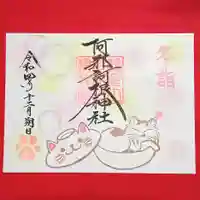 冬詣
阿邪訶根神社
令和四年十二月朔日